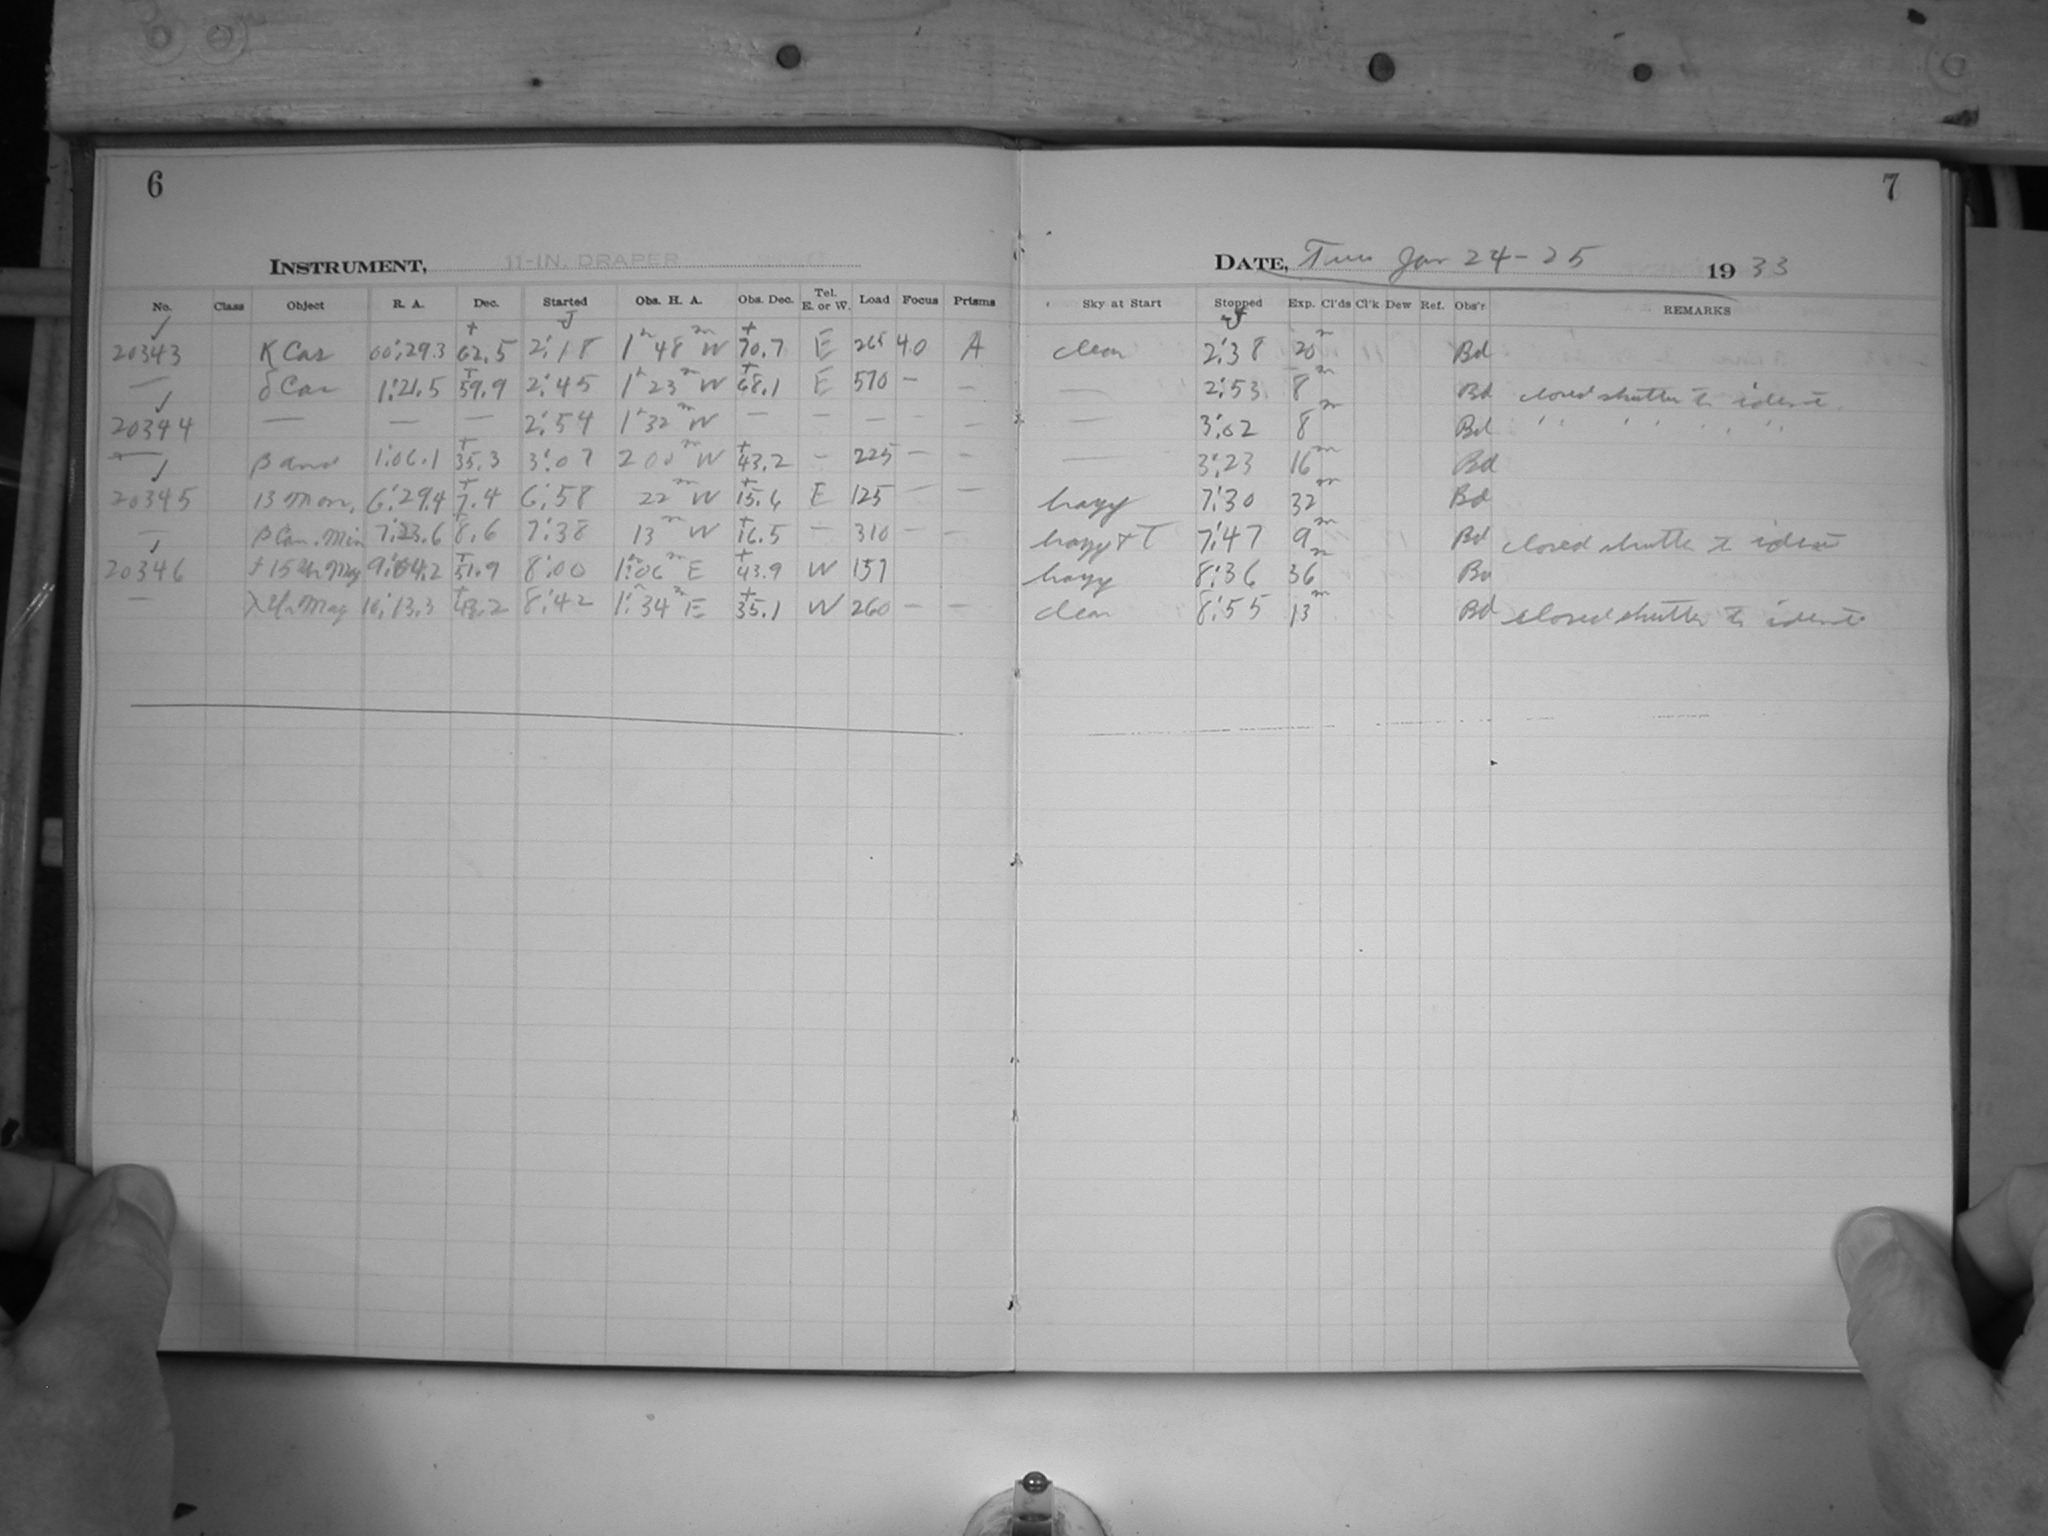 6
7
INSTRUMENT, 11-IN. DRAPER
DATE, Tues Jan 24-25 1933
No. Class Object R. A. Dec. Started Obs. H. A. Obs. Dec. Tel. E. or W. Load Focus Prisms Sky at Start Stopped Exp. Cl'ds Cl'k Dew Ref. Obs'r REMARKS
✓ + J + J
20343 K Cas 00:29.3 62.5 2:18 1h 48m W 70.7 E 265 40 A clear 2:38 20m Bd
— δ Cas 1:21.5 +59.9 2:45 1h 23m W +68.1 E 570 — — — 2:53 8m Bd closed shutter to ident.
✓ 20344 — — — 2:54 1h 32m W — — — — — 3:02 8m Bd " " " "
— β And 1:06.1 +35.3 3:07 2 00m W +43.2 — 225 — — — 3:23 16m Bd
✓ 20345 13 Mon. 6:29.4 +7.4 6:58 22m W +15.6 E 125 — — hazy 7:30 32m Bd
— β Can. Min 7:23.6 +8.6 7:38 13m W +16.5 — 310 — — hazy + T 7:47 9m Bd closed shutter to ident
✓ 20346 f 15 Ur Maj 9:04.2 +51.9 8:00 1h 06m E +43.9 W 157 hazy 8:36 36m Bd
— λ Ur Maj 10:13.3 +43.2 8:42 1h 34m E +35.1 W 260 — — clear 8:55 13m Bd closed shutter to ident.